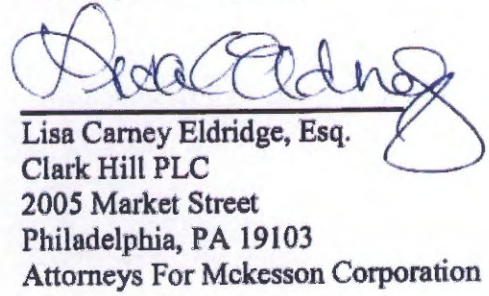 Lisa C Eldridge
Lisa Carney Eldridge, Esq.
Clark Hill PLC
2005 Market Street
Philadelphia, PA 19103
Attorneys For Mckesson Corporation